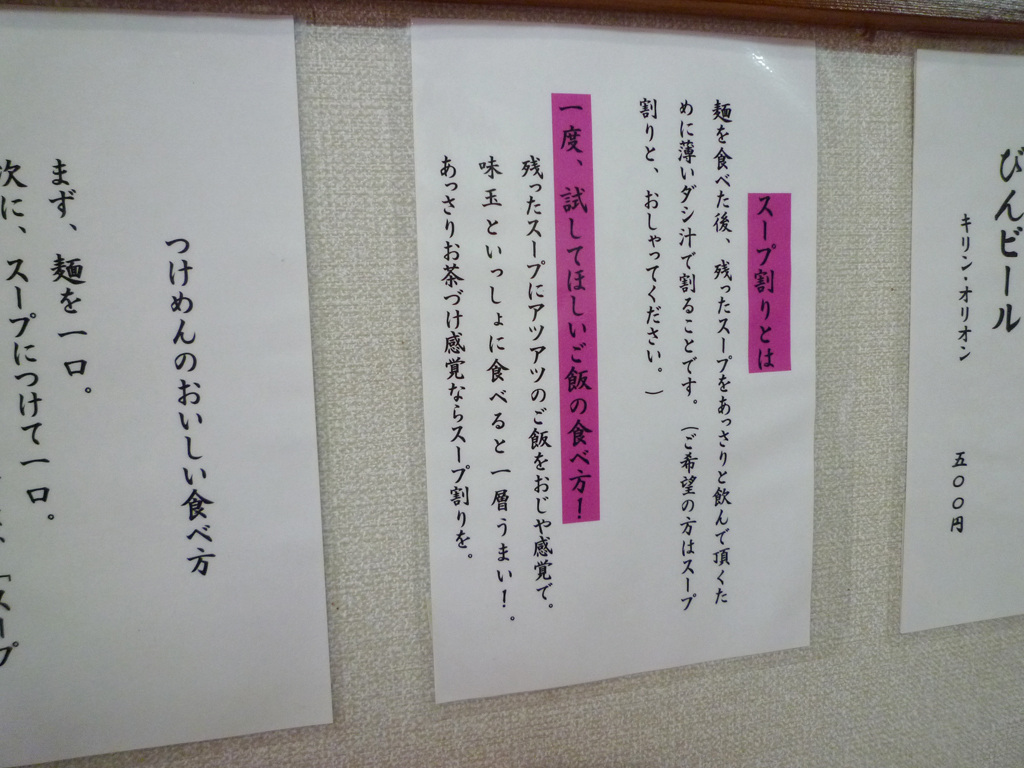 びんビール
キリン・オリオン
五〇〇円
スープ割りとは
麺を食べた後、残ったスープをあっさりと飲んで頂くた
めに薄いダシ汁で割ることです。（ご希望の方はスープ
割りと、おしゃってください。）
一度、試してほしいご飯の食べ方！
残ったスープにアツアツのご飯をおじや感覚で。
味玉といっしょに食べると一層うまい！。
あっさりお茶づけ感覚ならスープ割りを。
つけめんのおいしい食べ方
まず、麺を一口。
次に、スープにつけて一口。
「スープ